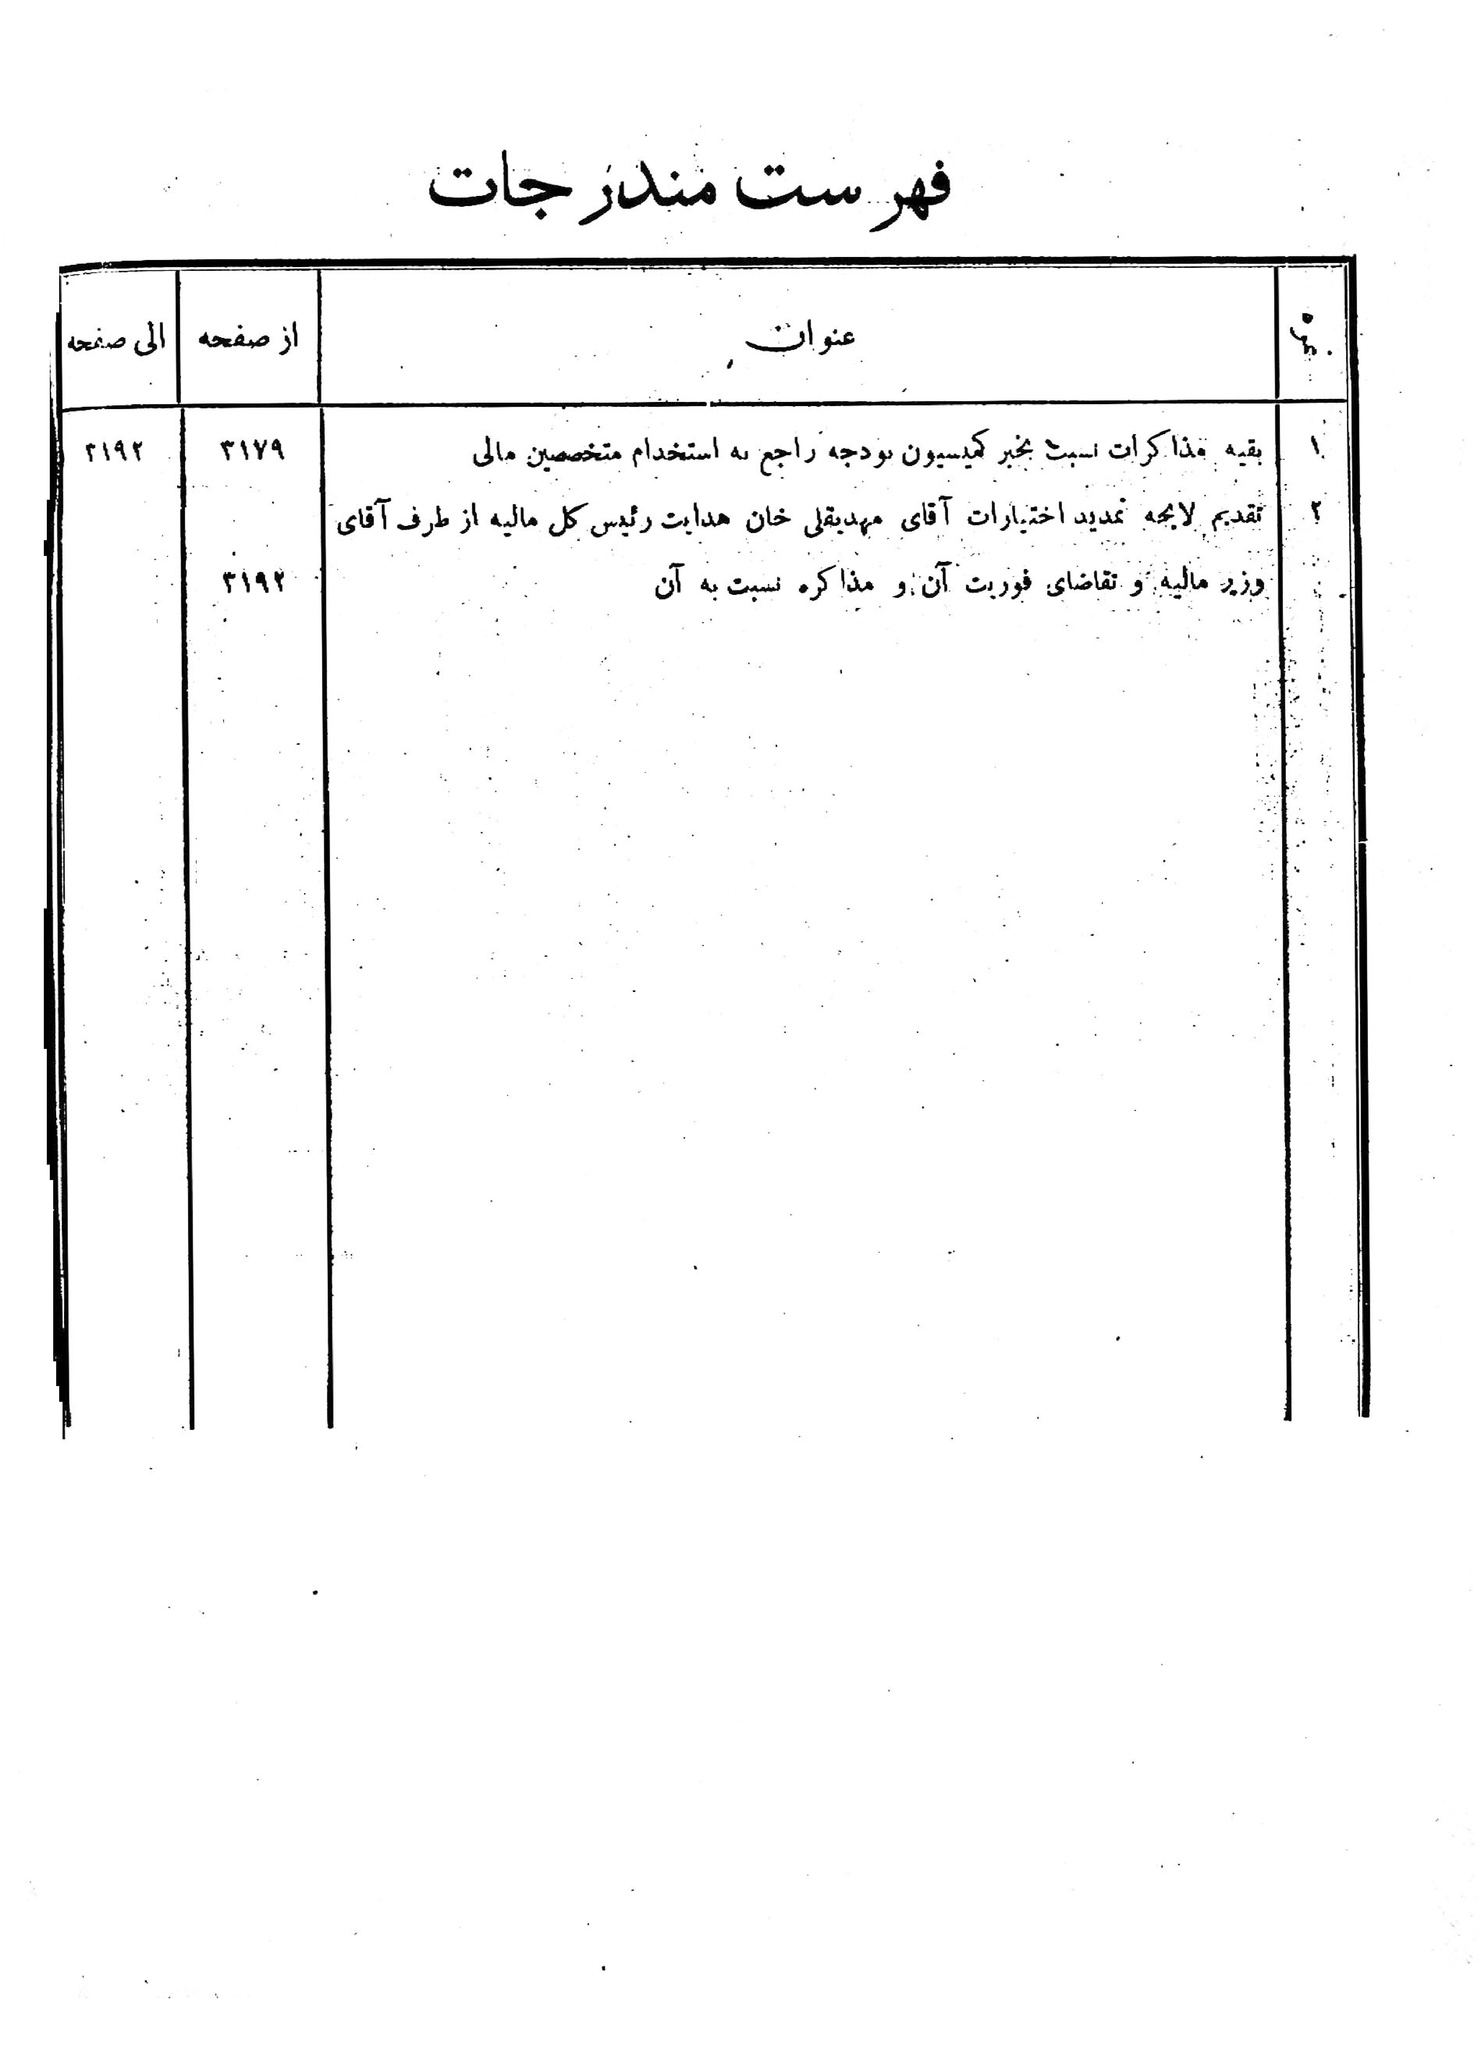 فهرست مندرجات
نمره عنوان از صفحه الی صفحه
۱ بقیه مذاکرات نسبت بخبر کمیسیون بودجه راجع به استخدام متخصصین مالی ۳۱۷۹ ۳۱۹۲
۲ تقدیم لایحه تمدید اختیارات آقای مهدیقلی خان هدایت رئیس کل مالیه از طرف آقای
وزیر مالیه و تقاضای فوریت آن و مذاکره نسبت به آن ۳۱۹۲